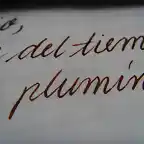 io,
del tiem
plumín